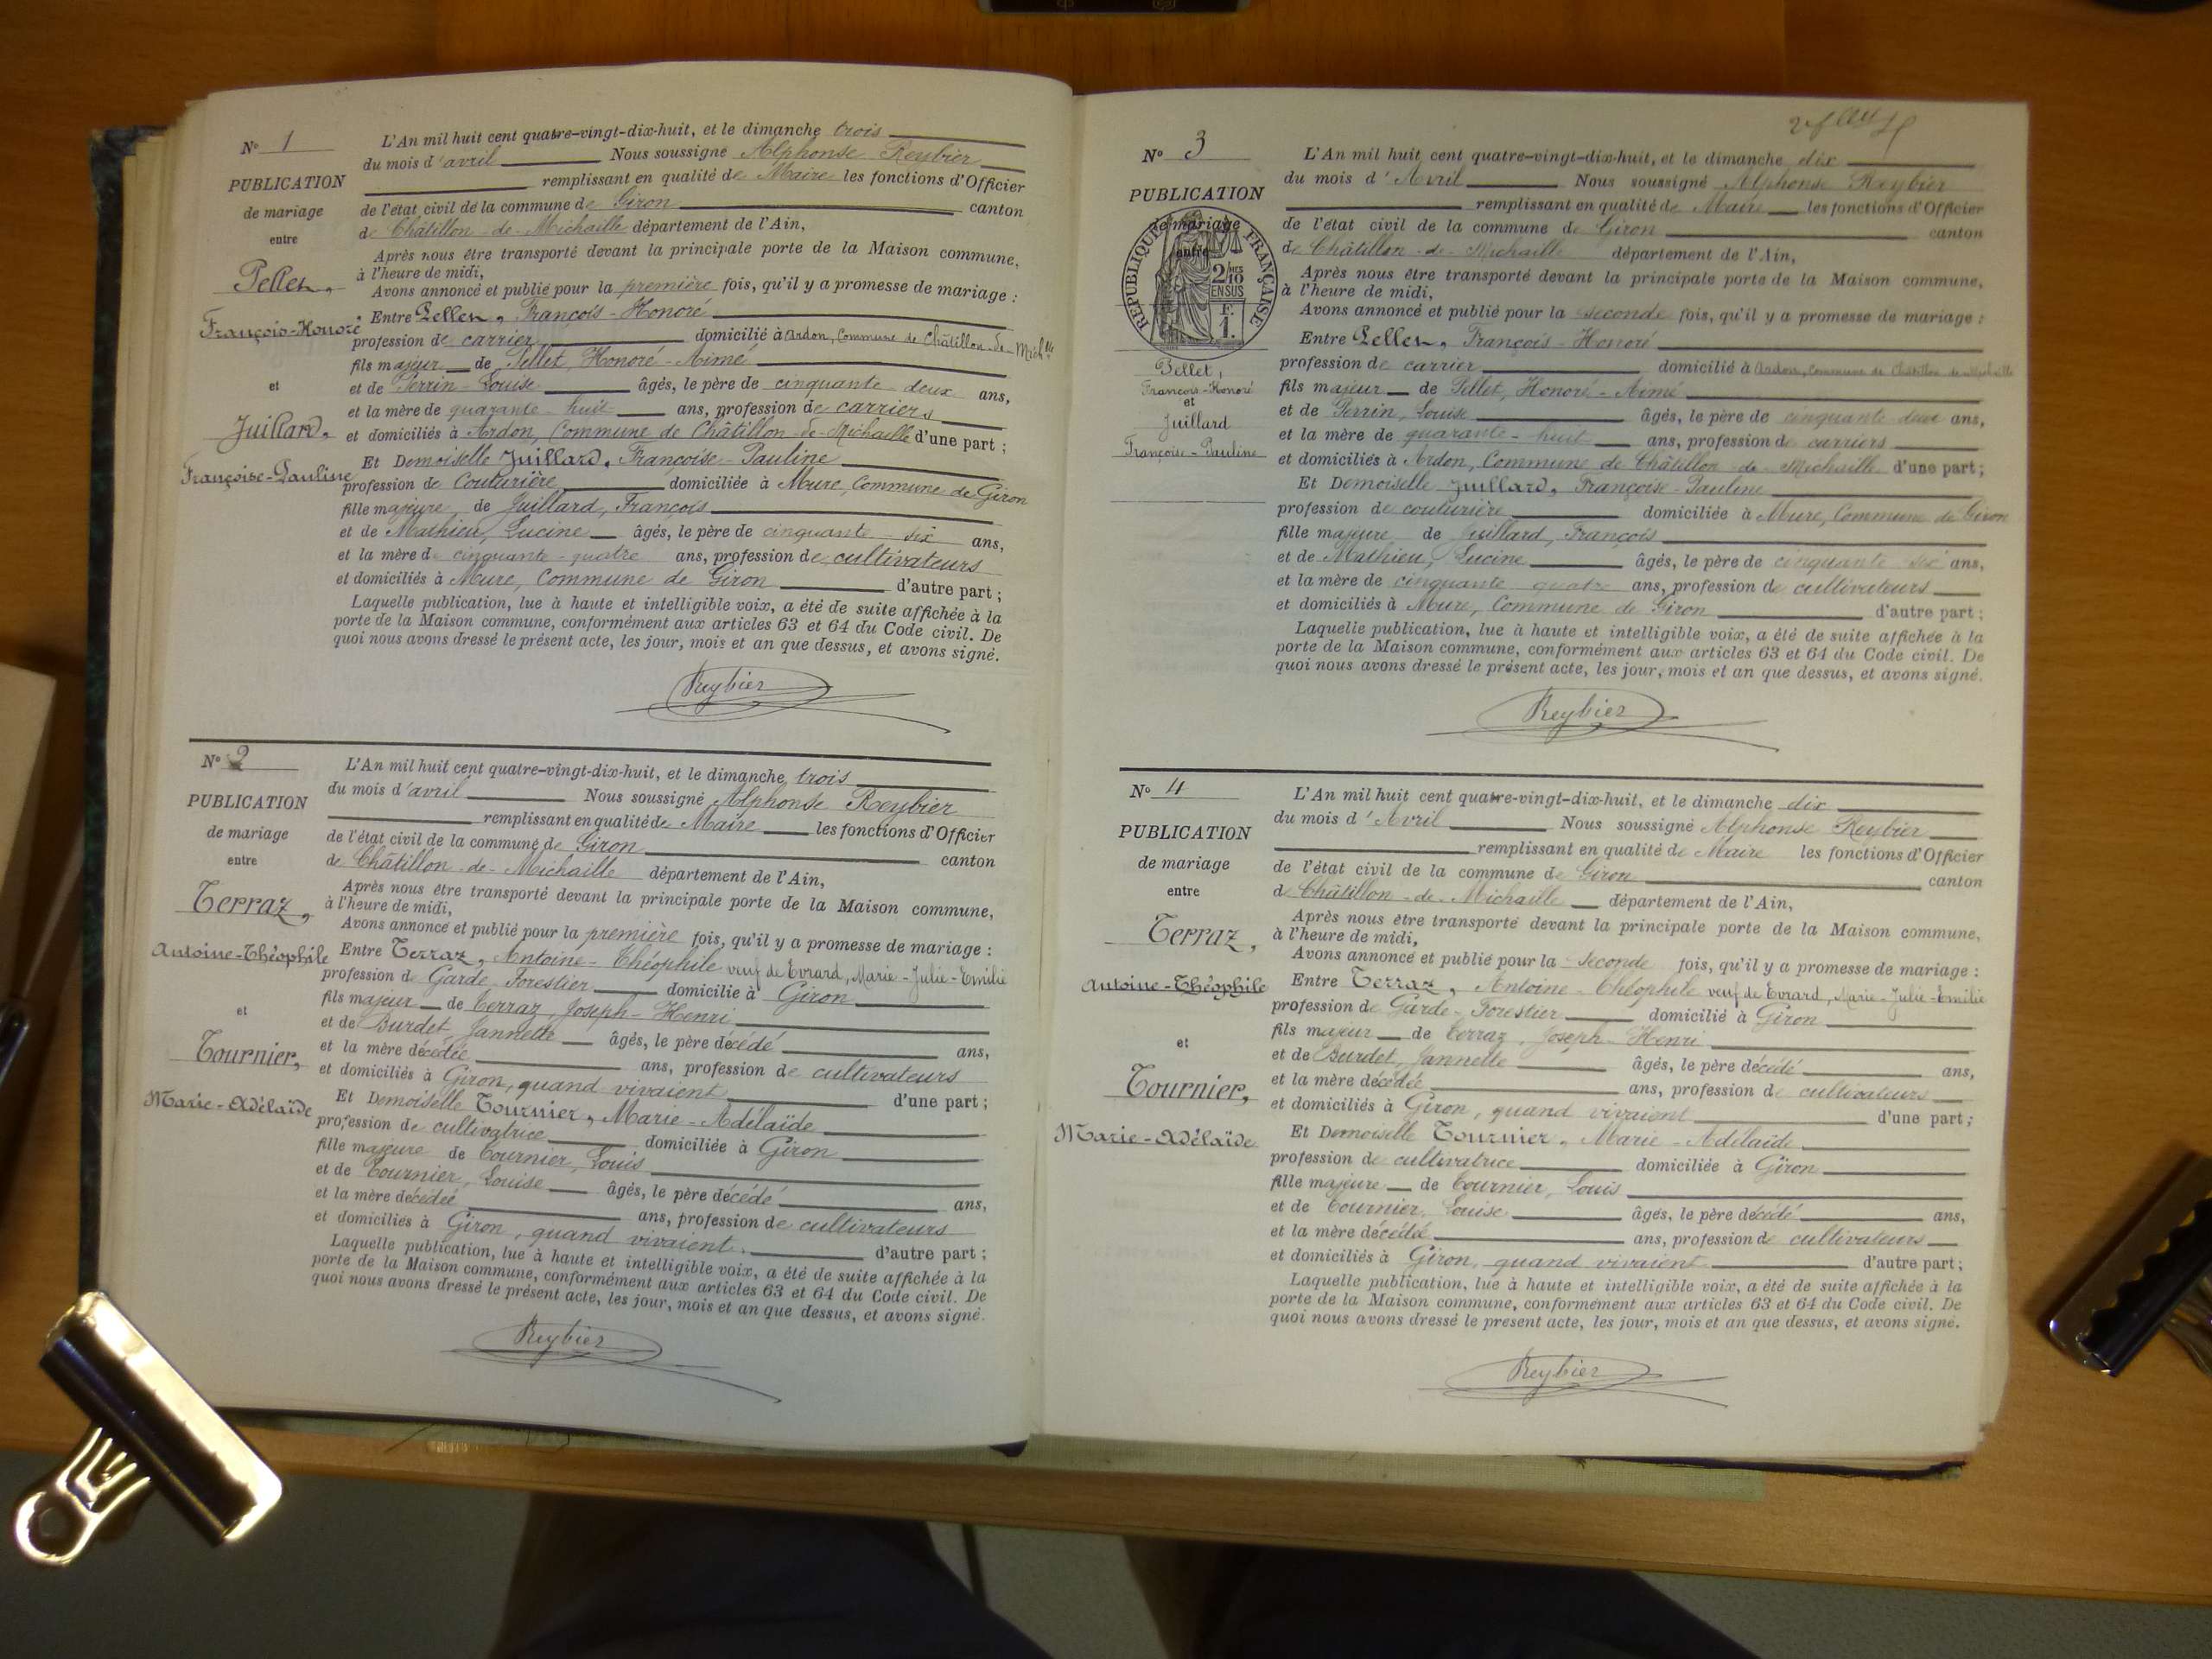 N° 1
PUBLICATION
de mariage
entre
Pellet,
François-Honoré
et
Juillard,
Françoise-Pauline
L'An mil huit cent quatre-vingt-dix-huit, et le dimanche trois
du mois d'avril Nous soussigné Alphonse Reybier
remplissant en qualité de Maire les fonctions d'Officier
de l'état civil de la commune de Giron canton
de Châtillon-de-Michaille département de l'Ain,
Après nous être transporté devant la principale porte de la Maison commune,
à l'heure de midi,
Avons annoncé et publié pour la première fois, qu'il y a promesse de mariage :
Entre Pellet, François-Honoré
profession de carrier domicilié à Ardon, Commune de Châtillon-de-Mich^lle
fils majeur de Pellet, Honoré-Aimé
et de Perrin Louise âgés, le père de cinquante deux ans,
et la mère de quarante-huit ans, profession de carriers
et domiciliés à Ardon, Commune de Châtillon-de-Michaille d'une part ;
Et Demoiselle Juillard, Françoise-Pauline
profession de Couturière domiciliée à Mure, Commune de Giron
fille majeure de Juillard, François
et de Mathieu, Lucine âgés, le père de cinquante-six ans,
et la mère de cinquante-quatre ans, profession de cultivateurs
et domiciliés à Mure, Commune de Giron d'autre part ;
Laquelle publication, lue à haute et intelligible voix, a été de suite affichée à la
porte de la Maison commune, conformément aux articles 63 et 64 du Code civil. De
quoi nous avons dressé le présent acte, les jour, mois et an que dessus, et avons signé.
Reybier
N° 2
PUBLICATION
de mariage
entre
Terraz,
Antoine-Théophile
et
Tournier,
Marie-Adélaïde
L'An mil huit cent quatre-vingt-dix-huit, et le dimanche trois
du mois d'avril Nous soussigné Alphonse Reybier
remplissant en qualité de Maire les fonctions d'Officier
de l'état civil de la commune de Giron canton
de Châtillon-de-Michaille département de l'Ain,
Après nous être transporté devant la principale porte de la Maison commune,
à l'heure de midi,
Avons annoncé et publié pour la première fois, qu'il y a promesse de mariage :
Entre Terraz, Antoine-Théophile veuf de Evrard, Marie-Julie-Emilie
profession de Garde Forestier domicilié à Giron
fils majeur de Terraz, Joseph-Henri
et de Burdet, Jannette âgés, le père décédé ans,
et la mère décédée ans, profession de cultivateurs
et domiciliés à Giron, quand vivaient d'une part ;
Et Demoiselle Tournier, Marie-Adélaïde
profession de cultivatrice domiciliée à Giron
fille majeure de Tournier, Louis
et de Tournier, Louise âgés, le père décédé ans,
et la mère décédée ans, profession de cultivateurs
et domiciliés à Giron, quand vivaient. d'autre part ;
Laquelle publication, lue à haute et intelligible voix, a été de suite affichée à la
porte de la Maison commune, conformément aux articles 63 et 64 du Code civil. De
quoi nous avons dressé le présent acte, les jour, mois et an que dessus, et avons signé.
Reybier
N° 3
PUBLICATION
de mariage
entre
RÉPUBLIQUE FRANÇAISE
2/10
EN SUS
F.
1.
Pellet,
François-Honoré
et
Juillard
Françoise-Pauline
L'An mil huit cent quatre-vingt-dix-huit, et le dimanche dix
du mois d'Avril Nous soussigné Alphonse Reybier
remplissant en qualité de Maire les fonctions d'Officier
de l'état civil de la commune de Giron canton
de Châtillon-de-Michaille département de l'Ain,
Après nous être transporté devant la principale porte de la Maison commune,
à l'heure de midi,
Avons annoncé et publié pour la seconde fois, qu'il y a promesse de mariage :
Entre Pellet, François-Honoré
profession de carrier domicilié à Ardon, Commune de Châtillon de Michaille
fils majeur de Pellet, Honoré-Aimé
et de Perrin, Louise âgés, le père de cinquante deux ans,
et la mère de quarante-huit ans, profession de carriers
et domiciliés à Ardon, Commune de Châtillon-de-Michaille d'une part ;
Et Demoiselle Juillard, Françoise-Pauline
profession de couturière domiciliée à Mure, Commune de Giron
fille majeure de Juillard, François
et de Mathieu, Lucine âgés, le père de cinquante six ans,
et la mère de cinquante quatre ans, profession de cultivateurs
et domiciliés à Mure, Commune de Giron d'autre part ;
Laquelle publication, lue à haute et intelligible voix, a été de suite affichée à la
porte de la Maison commune, conformément aux articles 63 et 64 du Code civil. De
quoi nous avons dressé le présent acte, les jour, mois et an que dessus, et avons signé.
Reybier
N° 4
PUBLICATION
de mariage
entre
Terraz,
Antoine-Théophile
et
Tournier,
Marie-Adélaïde
L'An mil huit cent quatre-vingt-dix-huit, et le dimanche dix
du mois d'Avril Nous soussigné Alphonse Reybier
remplissant en qualité de Maire les fonctions d'Officier
de l'état civil de la commune de Giron canton
de Châtillon-de-Michaille département de l'Ain,
Après nous être transporté devant la principale porte de la Maison commune,
à l'heure de midi,
Avons annoncé et publié pour la seconde fois, qu'il y a promesse de mariage :
Entre Terraz, Antoine-Théophile veuf de Evrard, Marie-Julie-Emilie
profession de Garde-Forestier domicilié à Giron
fils majeur de Terraz, Joseph Henri
et de Burdet, Jannette âgés, le père décédé ans,
et la mère décédée ans, profession de cultivateurs
et domiciliés à Giron, quand vivaient d'une part ;
Et Demoiselle Tournier, Marie-Adélaïde
profession de cultivatrice domiciliée à Giron
fille majeure de Tournier, Louis
et de Tournier, Louise âgés, le père décédé ans,
et la mère décédée ans, profession de cultivateurs
et domiciliés à Giron, quand vivaient d'autre part ;
Laquelle publication, lue à haute et intelligible voix, a été de suite affichée à la
porte de la Maison commune, conformément aux articles 63 et 64 du Code civil. De
quoi nous avons dressé le présent acte, les jour, mois et an que dessus, et avons signé.
Reybier